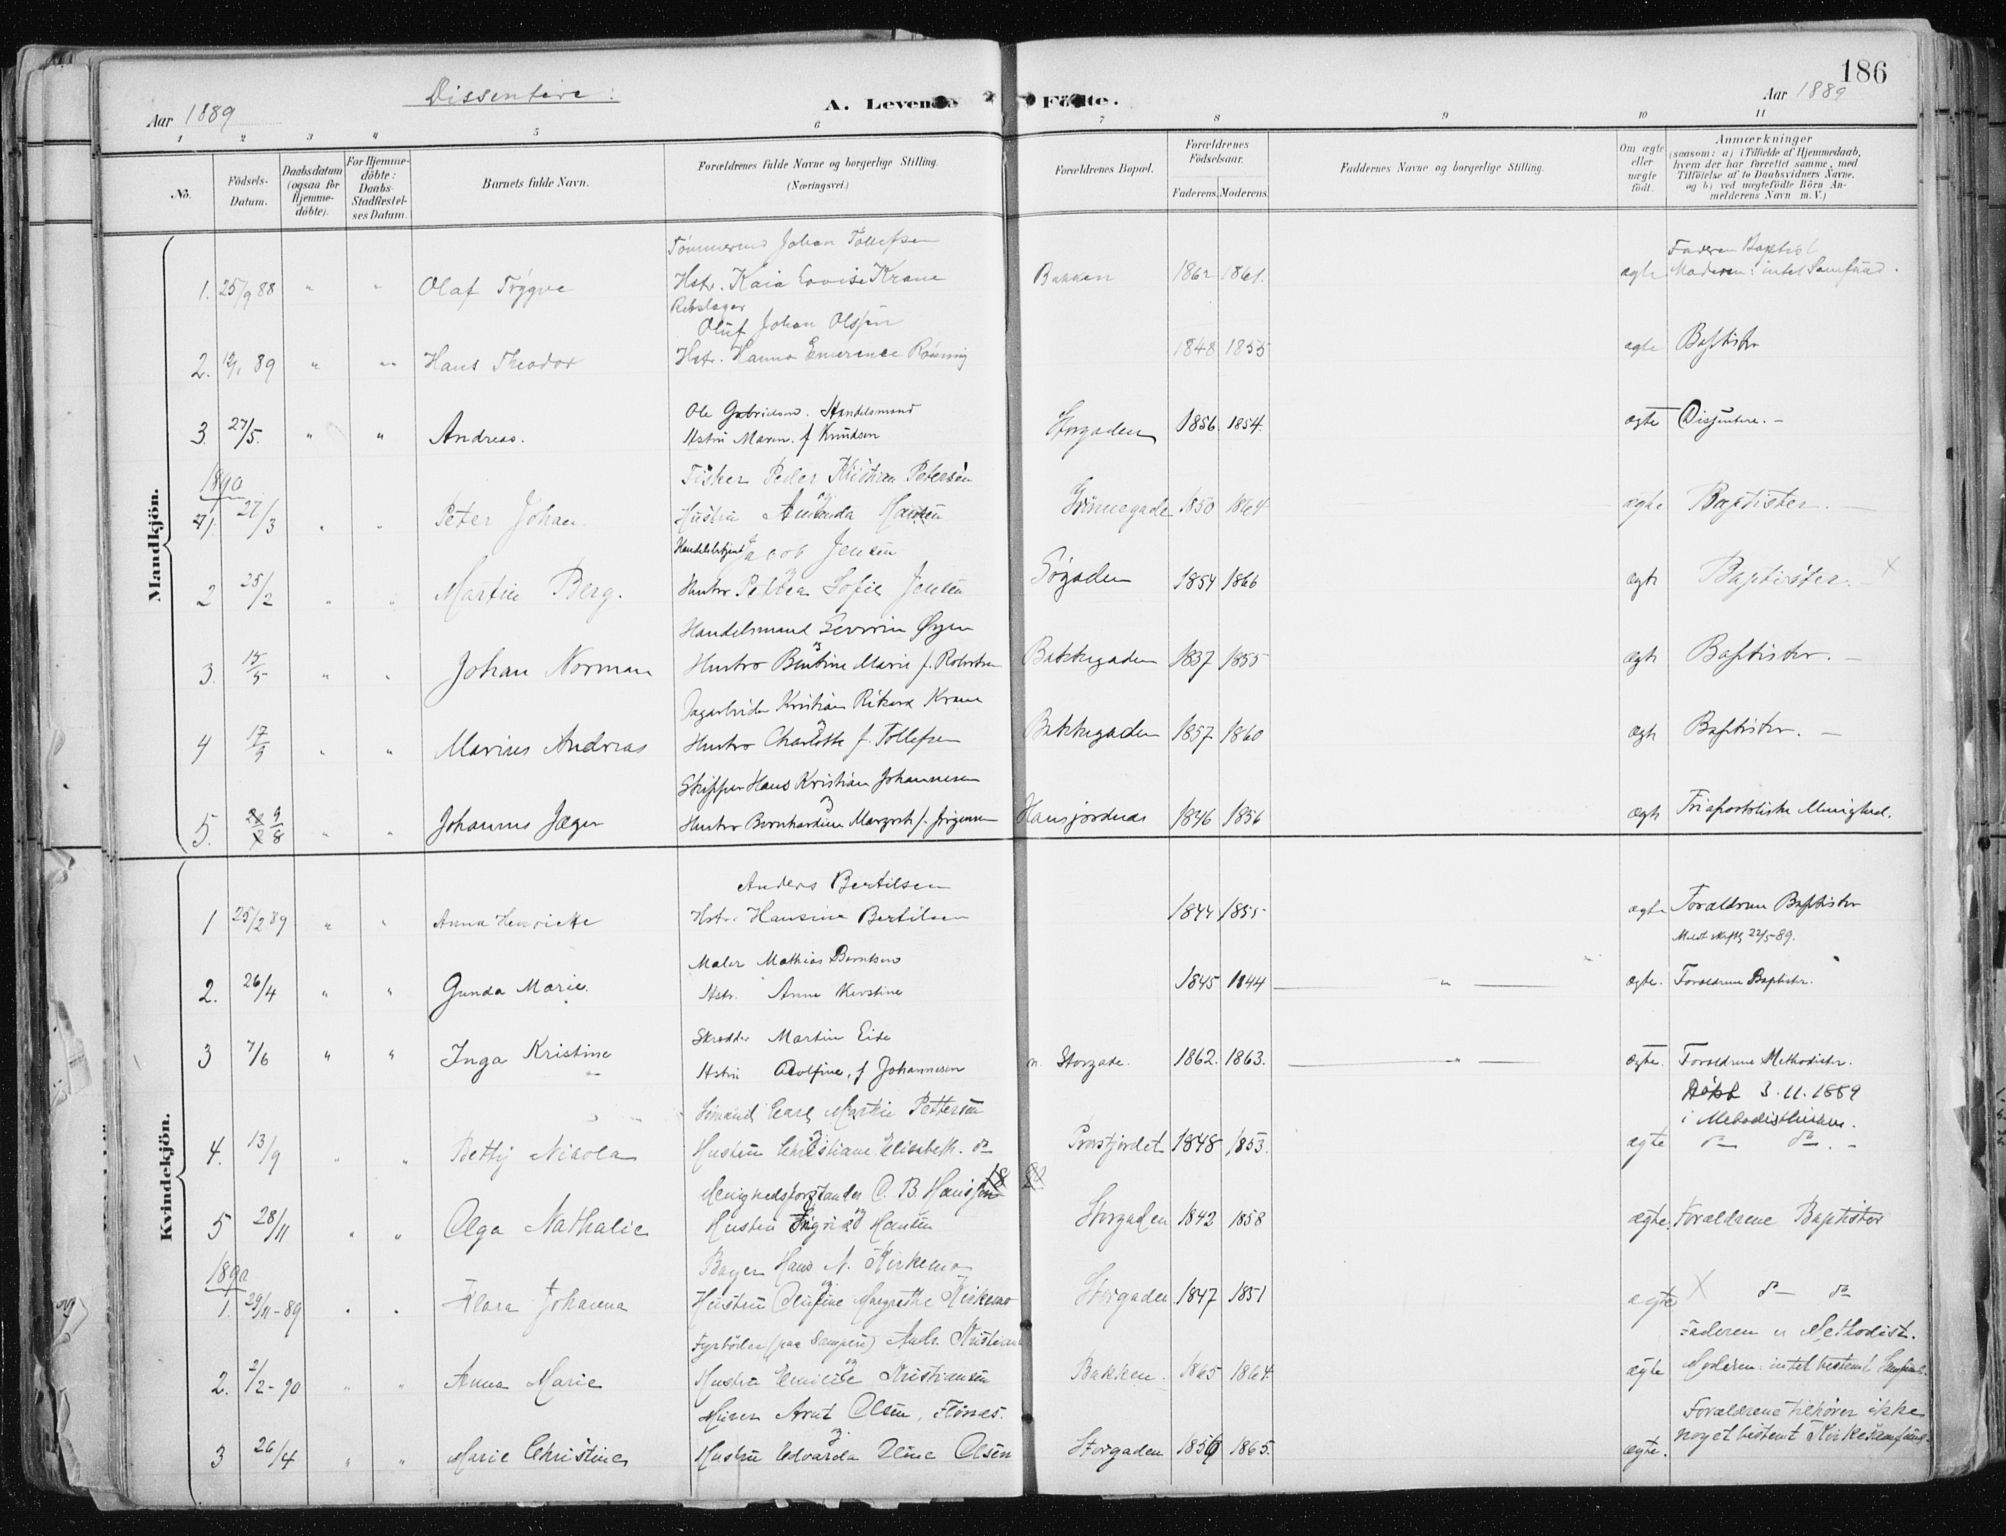 186
Dissentere:
Aar 1889
A. Levende Födte.
Aar 1889
1 2 3 4 5 6 7 8 9 10 11
No.
Födsels-Datum.
Daabsdatum (ogsaa for Hjemme-döbte).
For Hjemme-döbte: Daabs-Stadfæstel-ses Datum.
Barnets fulde Navn.
Forældrenes fulde Navne og borgerlige Stilling. (Næringsvei)
Forældrenes Bopæl.
Forældrenes Födselsaar.
Faderens. Moderens.
Faddernes Navne og borgerlige Stilling.
Om ægte eller uægte födt.
Anmærkninger
(saasom: a) i Tilfælde af Hjemmedaab,
hvem der har forrettet samme, med
Tilföielse af to Daabsvidners Navne.
og b) ved uægtefödte Börn An-
melderens Navn m. V.)
Mandkjön.
Tømmermd Johan Tollefsen Faderen Baptist
1. 25/9 88 " " Olaf Trygve Hstr. Kaia Lovise Krane Bakken 1862 1861. ægte Moderen: intet Samfund.
Rebslager
Oluf Johan Olssen
2. 89 " " Hans Theodor Hstr. Hanna Emerence Rönning 1848 1855 ægte Baptister
Ole Gabrielsen. Handelsmand
3. 27/5. " " Andreas. Hstru Maren. f Knudsen Storgaden 1856. 1854. ægte Dissentere. –
1890 Fisker Peder Kristian Petersen
1. 27/3 " " Peter Johan Hustru Amanda Hansen Grönnegade 1850 1864 ægte Baptister. —
Handelsbetjent Jacob Jensen
2 25/2 " " Martin Berg. Hustro Petrea Sofie Jensen Søgaden 1854 1866 ægte Baptister. – x
Handelsmand Severin Øyen
3. 15/5 " " Johan Norman Hustro Bentine Marie f. Robertsen Bakkegaden 1837 1855 ægte Baptister. –
Dagarbeider Kristian Rikard Krane
4 17/9 " " Marius Andreas Hustro Charlotte f. Tollefsen Bakkegaden 1857 1860 ægte Baptister. –
Skipper Hans Kristian Johannesen
5. 9/8 " " Johannes Jæger Hustro Bernhardine Margreth f. Jörgensen Hansjordnæs 1846 1856 ægte Friapostoliske Menighed.
Kvindekjön.
Anders Bertilsen
1 25/2 89 " " Anna Henriette Hstr. Hansine Bertilsen 1844 1855 ægte Forældrene Baptister
Meldt skriftlig 22/5-89.
Maler Mathias Berntsen
2. 26/4 " " Gunda Marie. Hstr. Anne Kerstine 1845 1844 — " — ægte. Forældrene Baptister.
Skrædder Martin Eide
3 7/6 " " Inga Kristine Hstru Adolfine, f Johannesen n. Storgade. 1862. 1863. — " — ægte. Forældrene Methodister.
Döbt 3.11.1889
Carl Martin Pettersen i Metodistkirken.
4. 13/9 " " Betty Nicola Hustru Christiane Elisabeth. do Præstjordet 1848 1853. ægte do do. –
Menighedsforstander O. B. Hanssen
5 28/11 " " Olga Nathalie Hustru Ingrid Hansen Storgaden 1842 1858 ægte. Forældrene Baptister
1890 Bager Hans N. Kirkemo
1. 29/11-89 " " Klara Johanna Hustru Olufine Margrethe Kirkemo Storgaden 1847 1851 ægte X do do
Fyrböder (paa Dampsk) Andr. Kristiansen Faderen er Methodist.
2. 2/2-90 " " Anna Marie Hustru Emilie Kristiansen Bakken. 1865 1864. ægte Moderen: intet bestemt Samfund.
Murer Arnt Olsen, Flönæs. Forældrene tilhører ikke
3 26/4 " " Marie Christine Hustru Edvarda Oline Olsen Storgaden 1856 1865. ægte. noget bestemt Kirkesamfund.